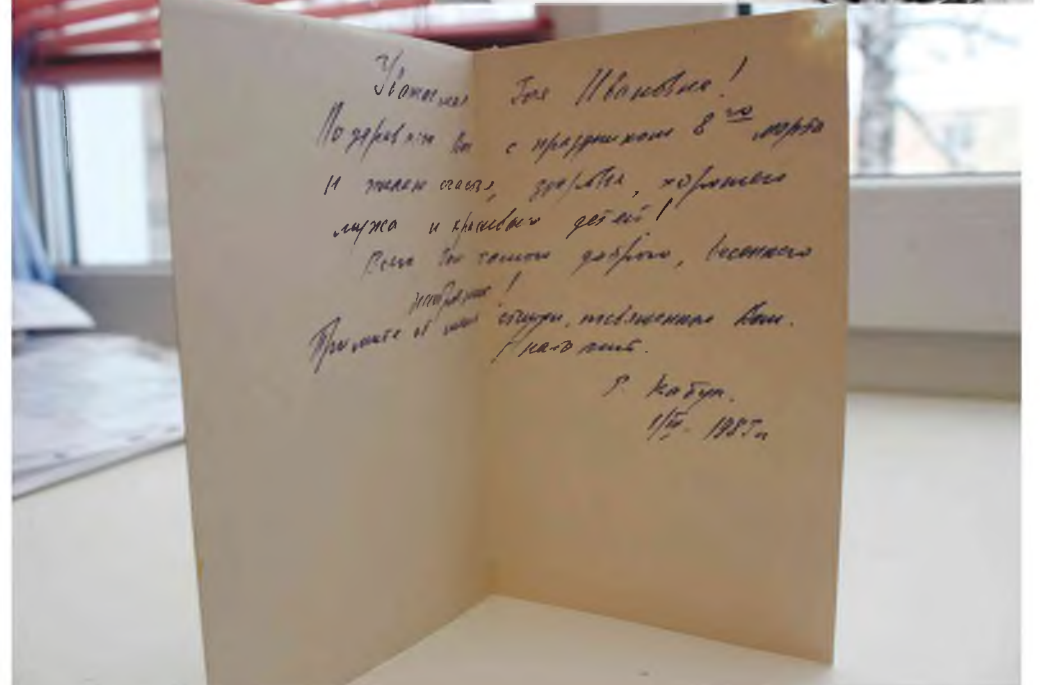 Уважаемая Зоя Ивановна!
Поздравляю Вас с праздником 8го марта
и желаю счастья, здоровья, хорошего
мужа и красивых детей!
Всего Вам самого доброго, весеннего
настроения!
Примите от меня стихи, посвященные Вам.
г. Кабул.
1/III- 1985г